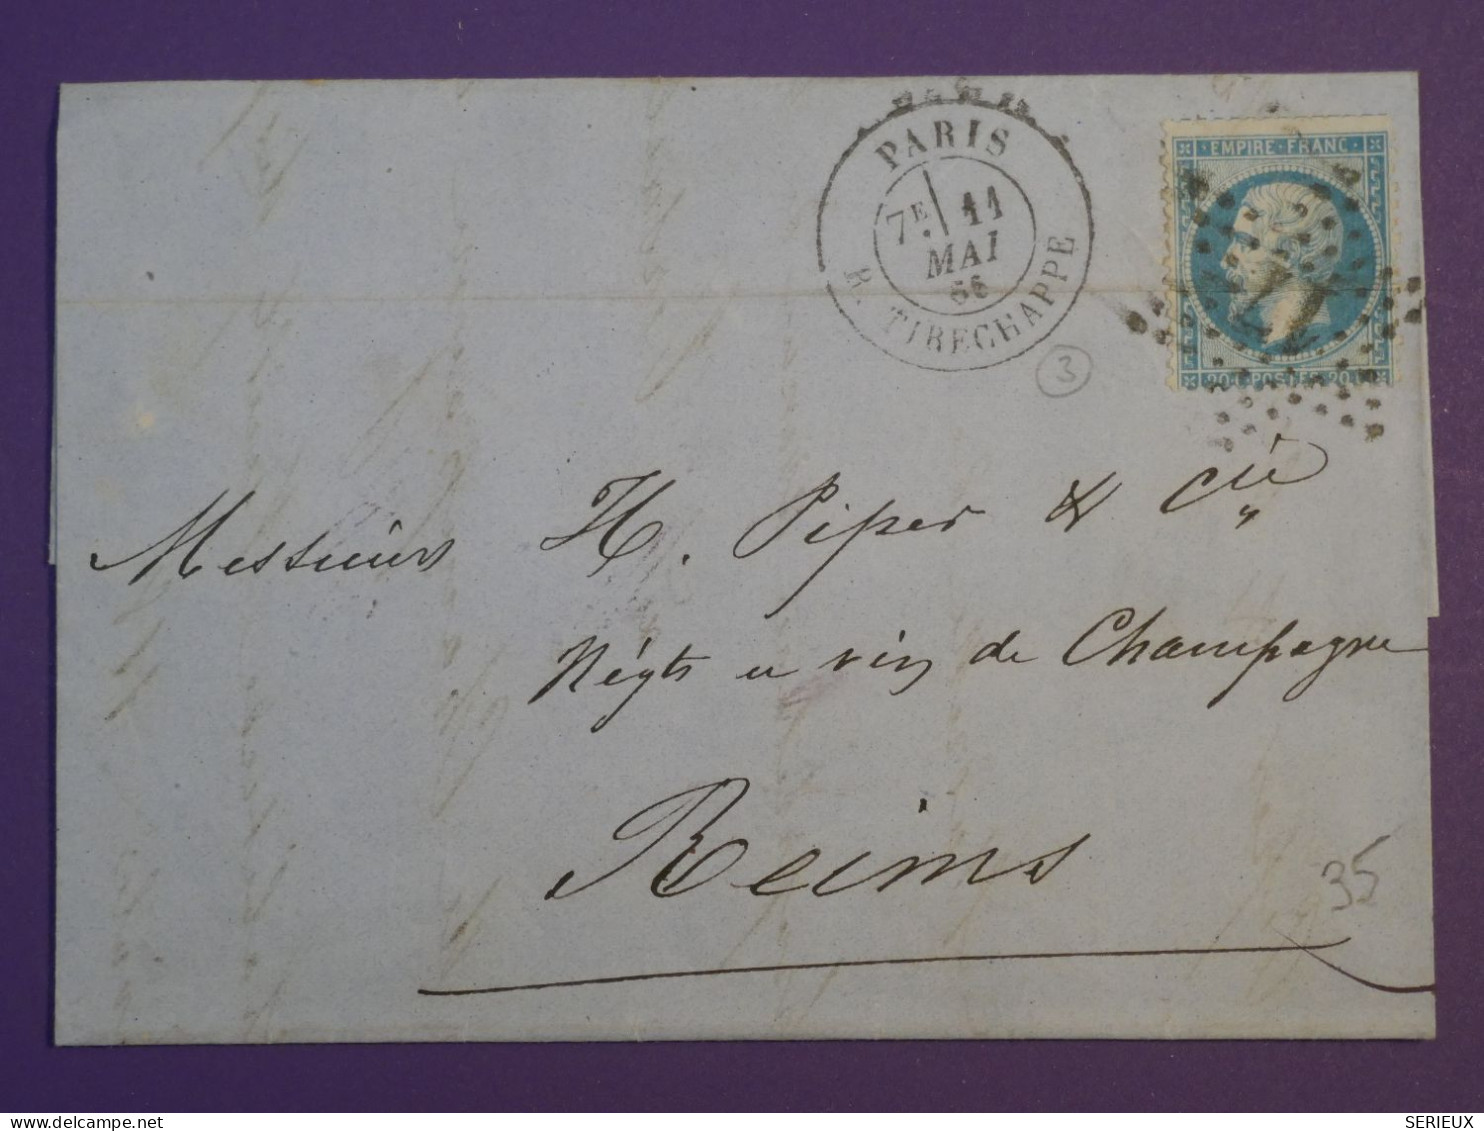 PARIS
7E 11
MAI
66
R. TIRECHAPPE
EMPIRE · FRANC ·
20 C POSTES 20 C
3
Messieurs H. Piper & Cie
Négts en vin de Champagne
Reims
35
delcampe.net
SERIEUX